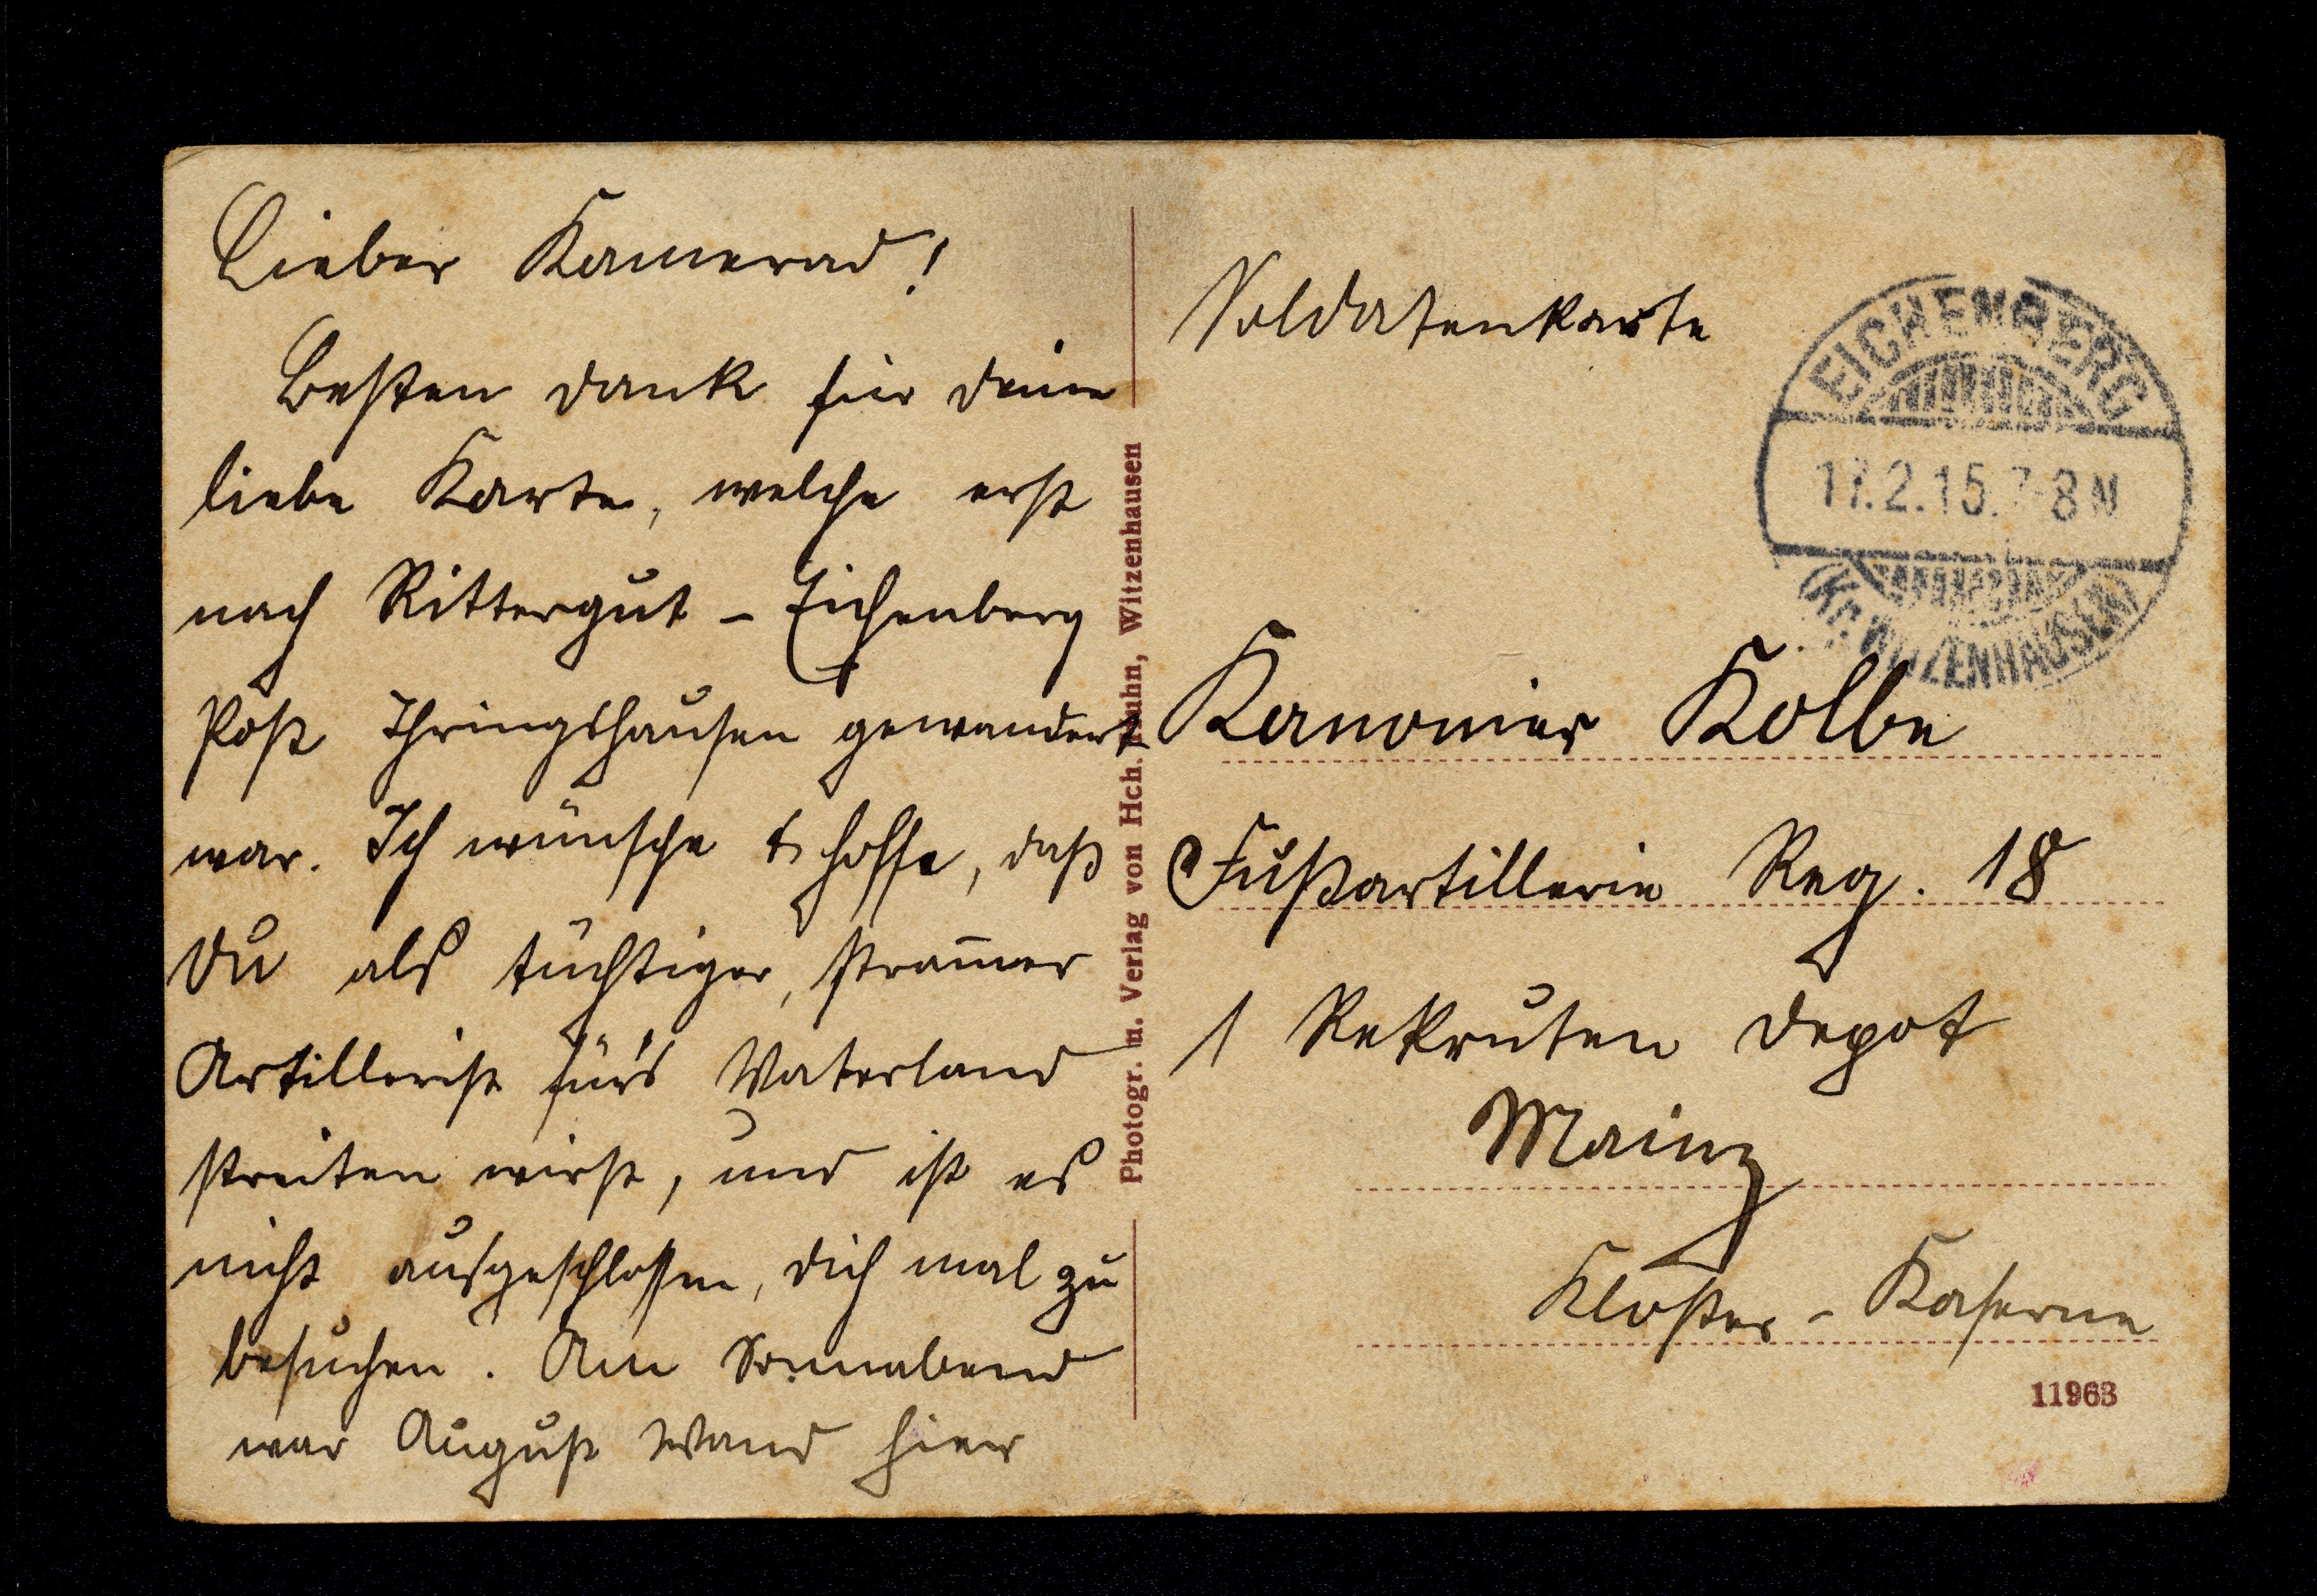 Lieber Kamerad!
Besten Dank für deine
liebe Karte, welche erst
nach Rittergut - Eichenberg
Post Ihringshausen gewandert
war. Ich wünsche & hoffe, daß
Du als tüchtiger, stram̅er
Artillerist für's Vaterland
streiten wirst, und ist es
nicht ausgeschlossen, dich mal zu
besuchen. Am Sonnabend
war August Wand hier
Photogr. u. Verlag von Hch. Kuhn, Witzenhausen
Soldatenkarte
EICHENBERG
17.2.15. 7-8 N
(Kr. WITZENHAUSEN)
Kanonier Kolbe
Fußartillerie Reg. 18
1 Rekruten Depot
Mainz
Kloster - Kaserne
11963